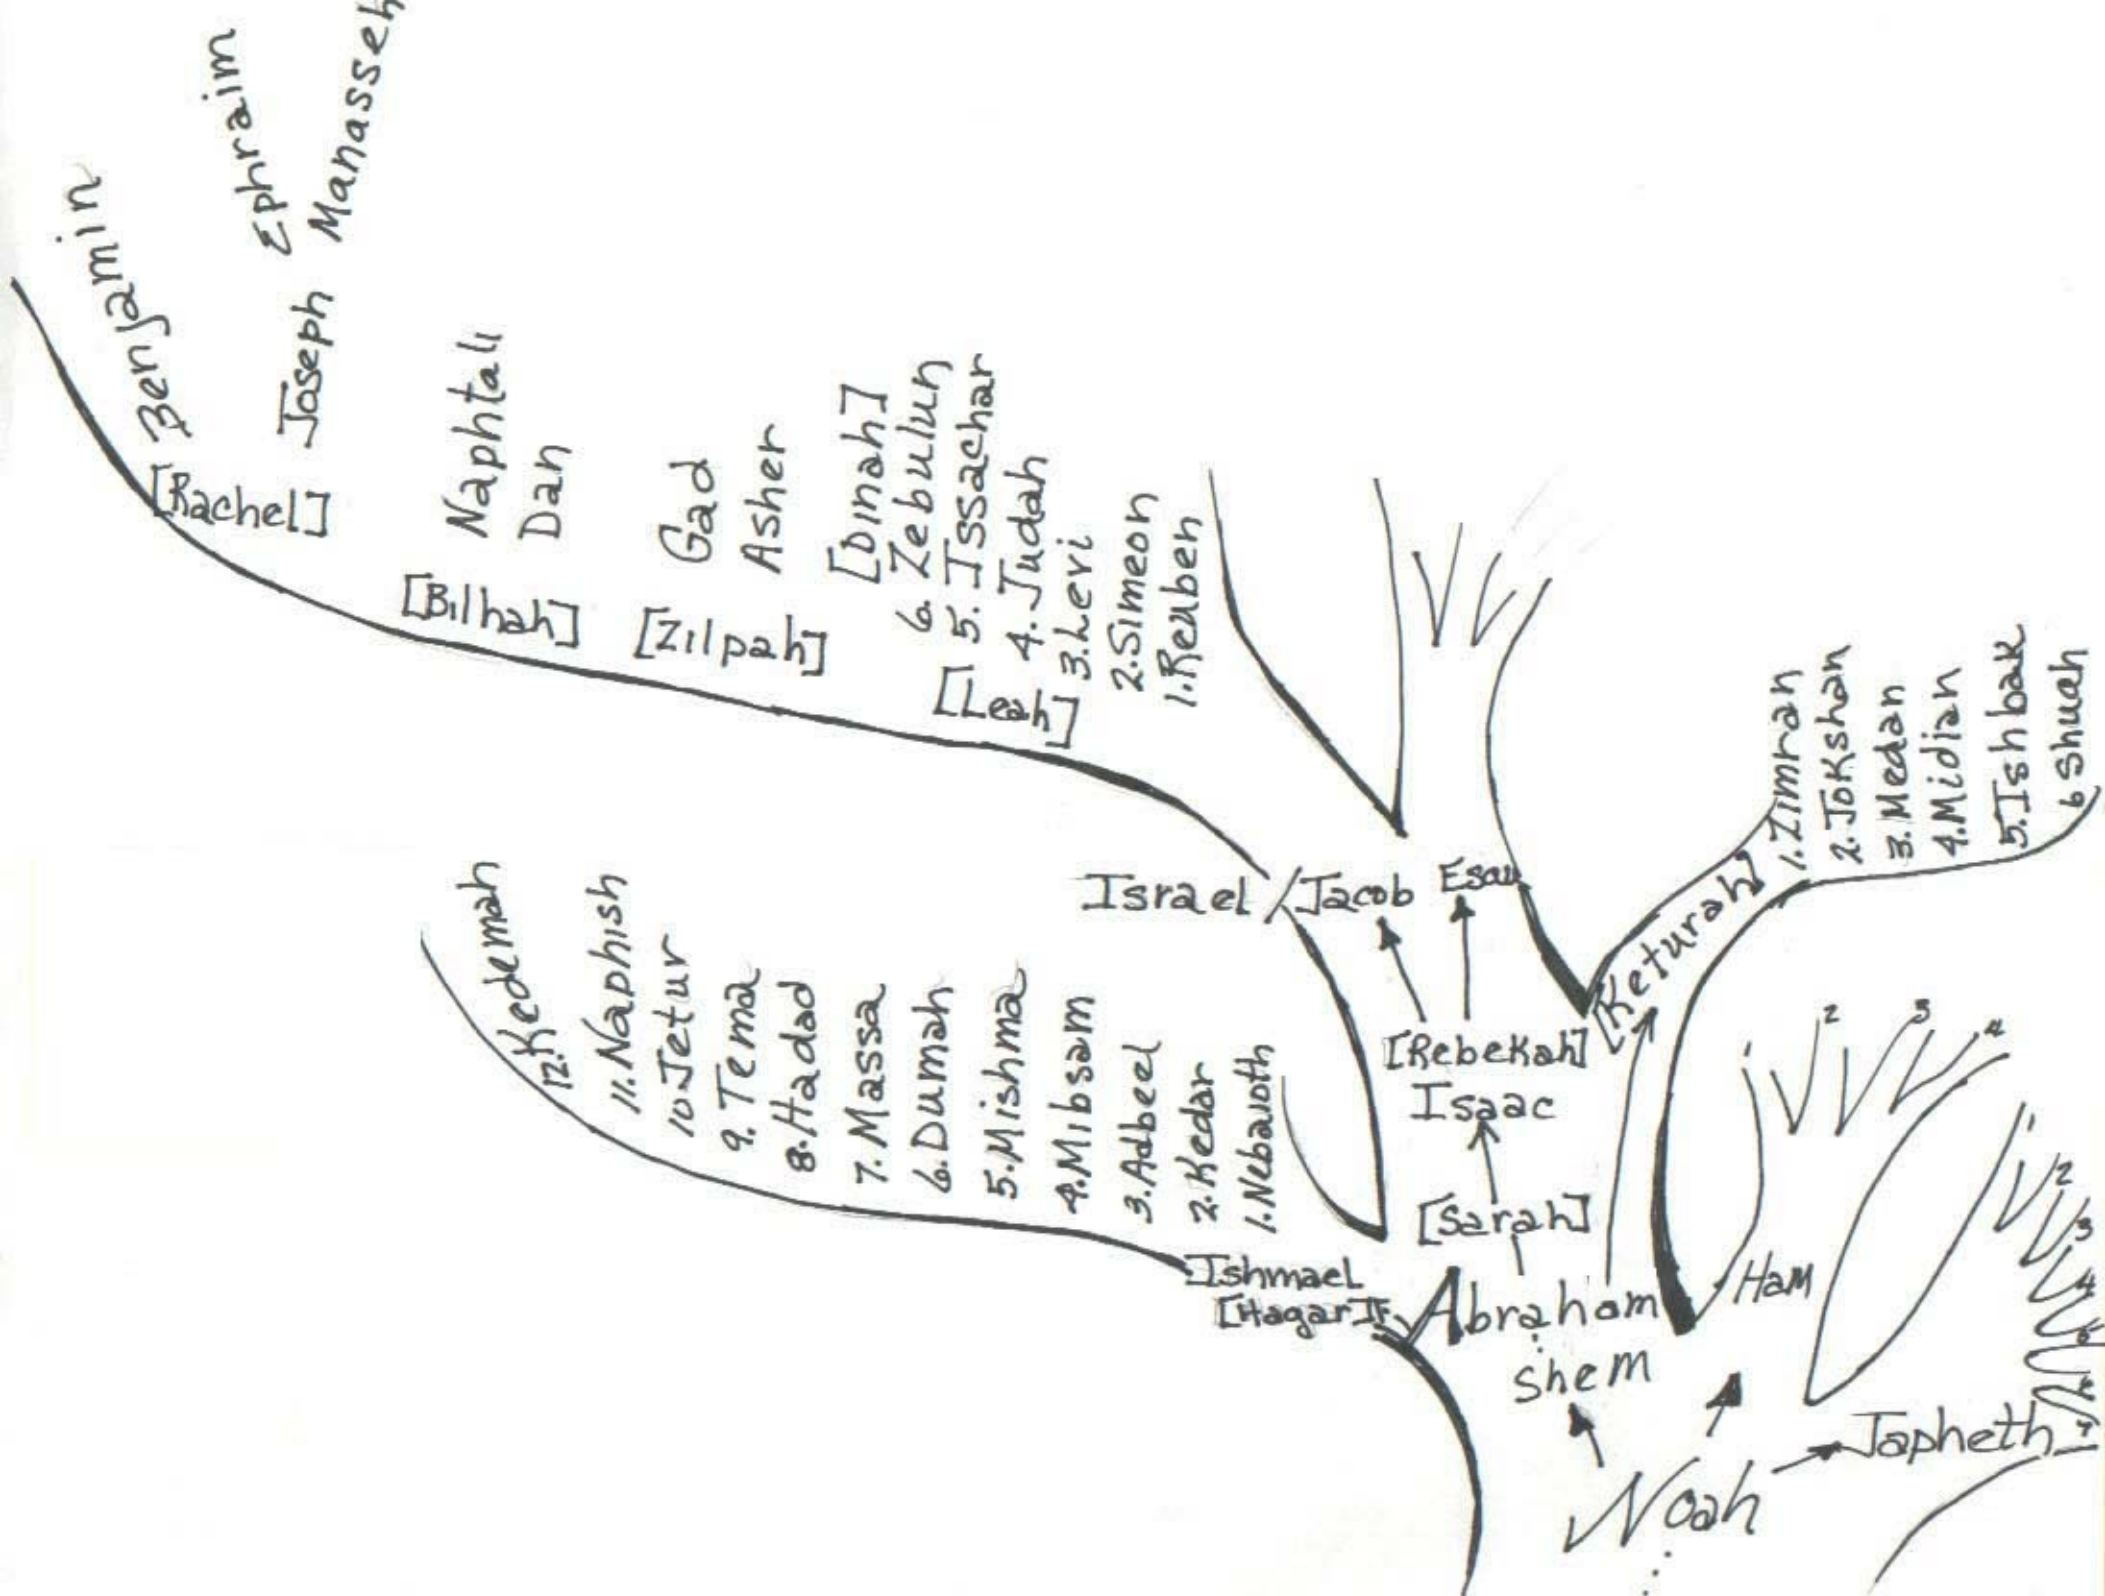 Benjamin
Ephraim
Manasseh
Joseph
[Rachel]
Naphtali
Dan
[Bilhah]
Gad
Asher
[Zilpah]
[Dinah]
6. Zebulun
5. Issachar
4. Judah
3. Levi
2. Simeon
1. Reuben
[Leah]
Israel / Jacob
Esau
[Keturah]
1. Zimran
2. Jokshan
3. Medan
4. Midian
5. Ishbak
6 Shuah
12. Kedemah
11. Naphish
10. Jetur
9. Tema
8. Hadad
7. Massa
6. Dumah
5. Mishma
4. Mibsam
3. Adbeel
2. Kedar
1. Nebaioth
[Rebekah]
Isaac
[Sarah]
Ishmael
[Hagar]
Abraham
Shem
Ham
2
3
4
Japheth
2
3
4
Noah